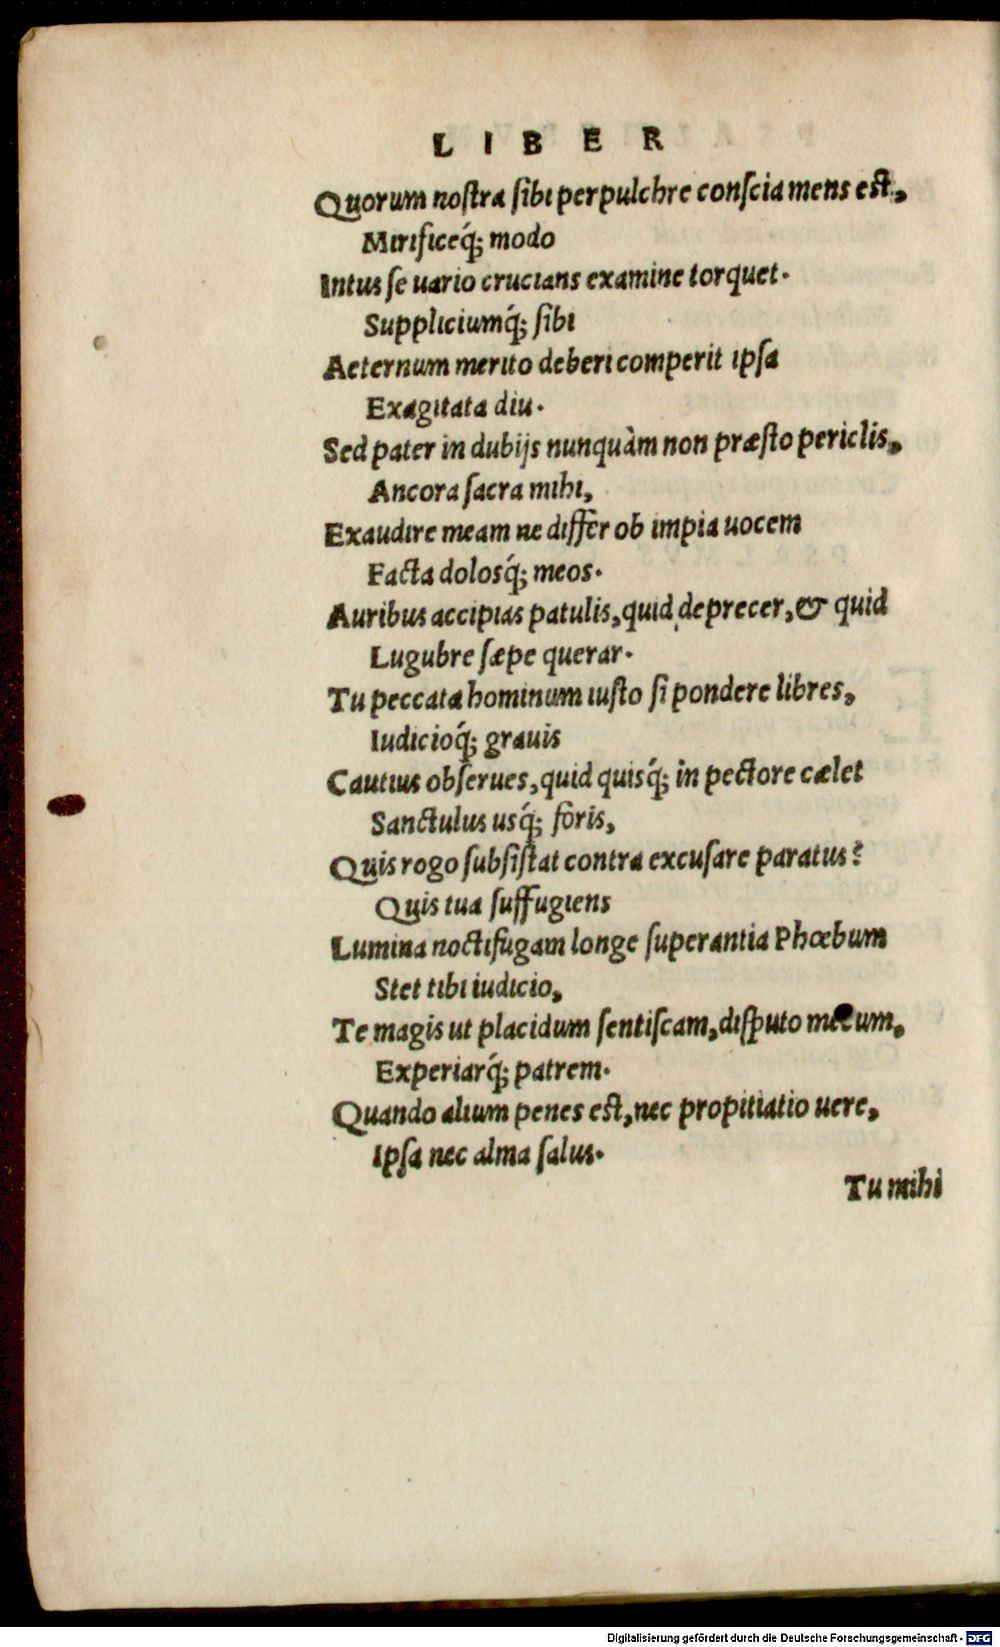 LIBER
Quorum noſtra ſibi perpulchre conſcia mens eſt,
Mirificeq́; modo
Intus ſe uario crucians examine torquet.
Suppliciumq́; ſibi
Aeternum merito deberi comperit ipſa
Exagitata diu.
Sed pater in dubijs nunquàm non præſto periclis,
Ancora ſacra mihi,
Exaudire meam ne differ ob impia uocem
Facta dolosq́; meos.
Auribus accipias patulis, quid deprecer, & quid
Lugubre ſæpe querar.
Tu peccata hominum iuſto ſi pondere libres,
Iudicioq́; grauis
Cautius obſerues, quid quisq́; in pectore cælet
Sanctulus usq́; foris,
Quis rogo ſubſiſtat contra excuſare paratus?
Quis tua ſuffugiens
Lumina noctifugam longe ſuperantia Phœbum
Stet tibi iudicio,
Te magis ut placidum ſentiſcam, diſputo mecum,
Experiarq́; patrem.
Quando alium penes eſt, nec propitiatio uere,
Ipſa nec alma ſalus.
Tu mihi
Digitalisierung gefördert durch die Deutsche Forschungsgemeinschaft - DFG